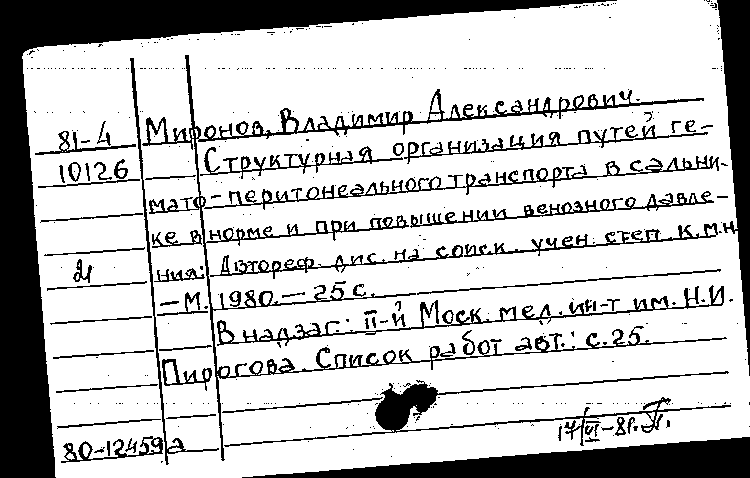 81-4 Миронов, Владимир Александрович.
10126 Структурная организация путей ге-
мато-перитонеального транспорта в сальни-
ке в норме и при повышении венозного давле-
ния: Автореф. дис. на соиск. учен. степ. к.м.н.
— М. 1980. — 25 с.
В надзаг.: II-й Моск. мед. ин-т им. Н.И.
Пирогова. Список работ авт.: с. 25.
80-12459а 17/VI-81г.